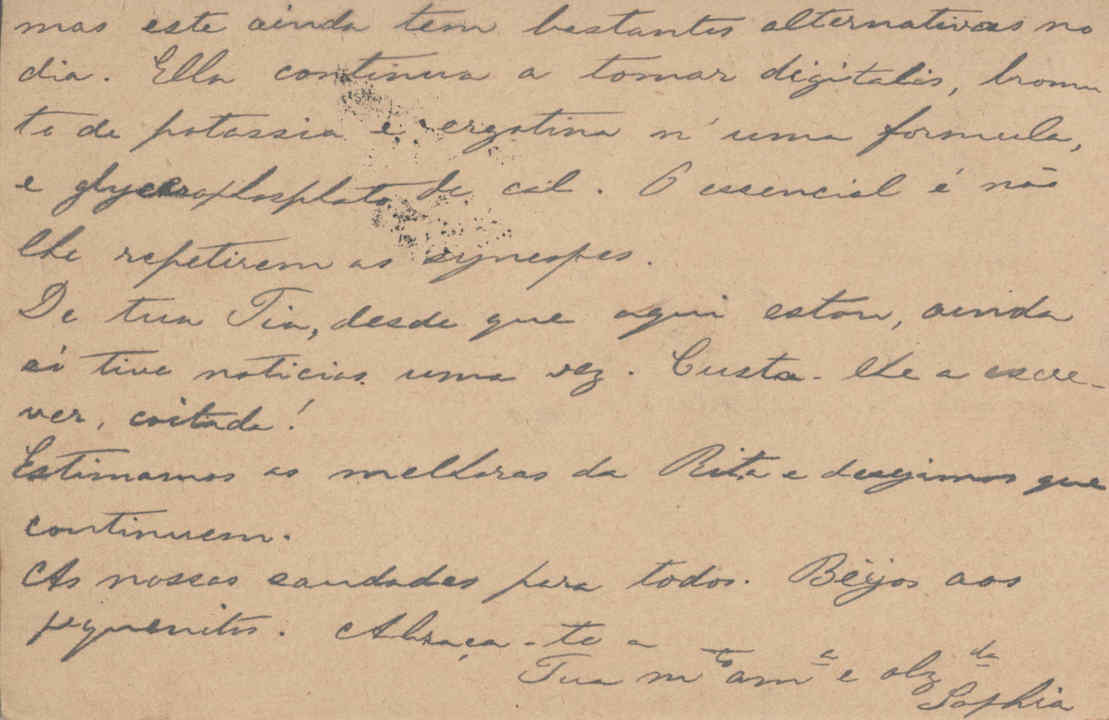 mas este ainda tem bastantes alternativas no
dia. Ella continua a tomar digitalis, bromu
to de potassio e ergotina n'uma formula,
e glycerophosphato de cal. O essencial é não
lhe repetirem as syncopes.
De tua Tia, desde que aqui estou, ainda
só tive noticias uma vez. Custa-lhe a escre-
ver, coitada!
Estimamos as melhoras da Rita e desejamos que
continuem.
As nossas saudades para todos. Beijos aos
pequenitos. Abraça-te a
Tua m.to am.a e obg.da
Sophia